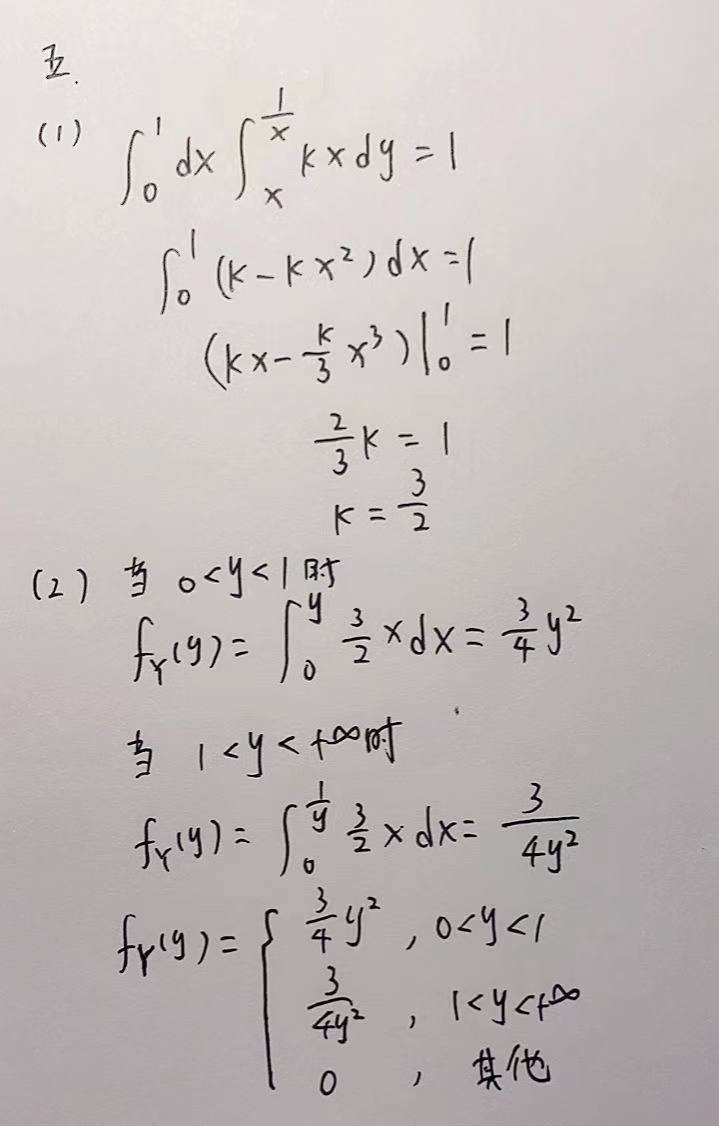 五.
(1) ∫₀¹ dx ∫ₓ^{1/x} kx dy = 1
∫₀¹ (k - kx²) dx = 1
(kx - k/3 x³)|₀¹ = 1
2/3 k = 1
k = 3/2
(2) 当 0<y<1 时
f_Y(y) = ∫₀^y 3/2 x dx = 3/4 y²
当 1<y<+∞时
f_Y(y) = ∫₀^{1/y} 3/2 x dx = 3/(4y²)
f_Y(y) = { 3/4 y² , 0<y<1
3/(4y²) , 1<y<+∞
0 , 其他